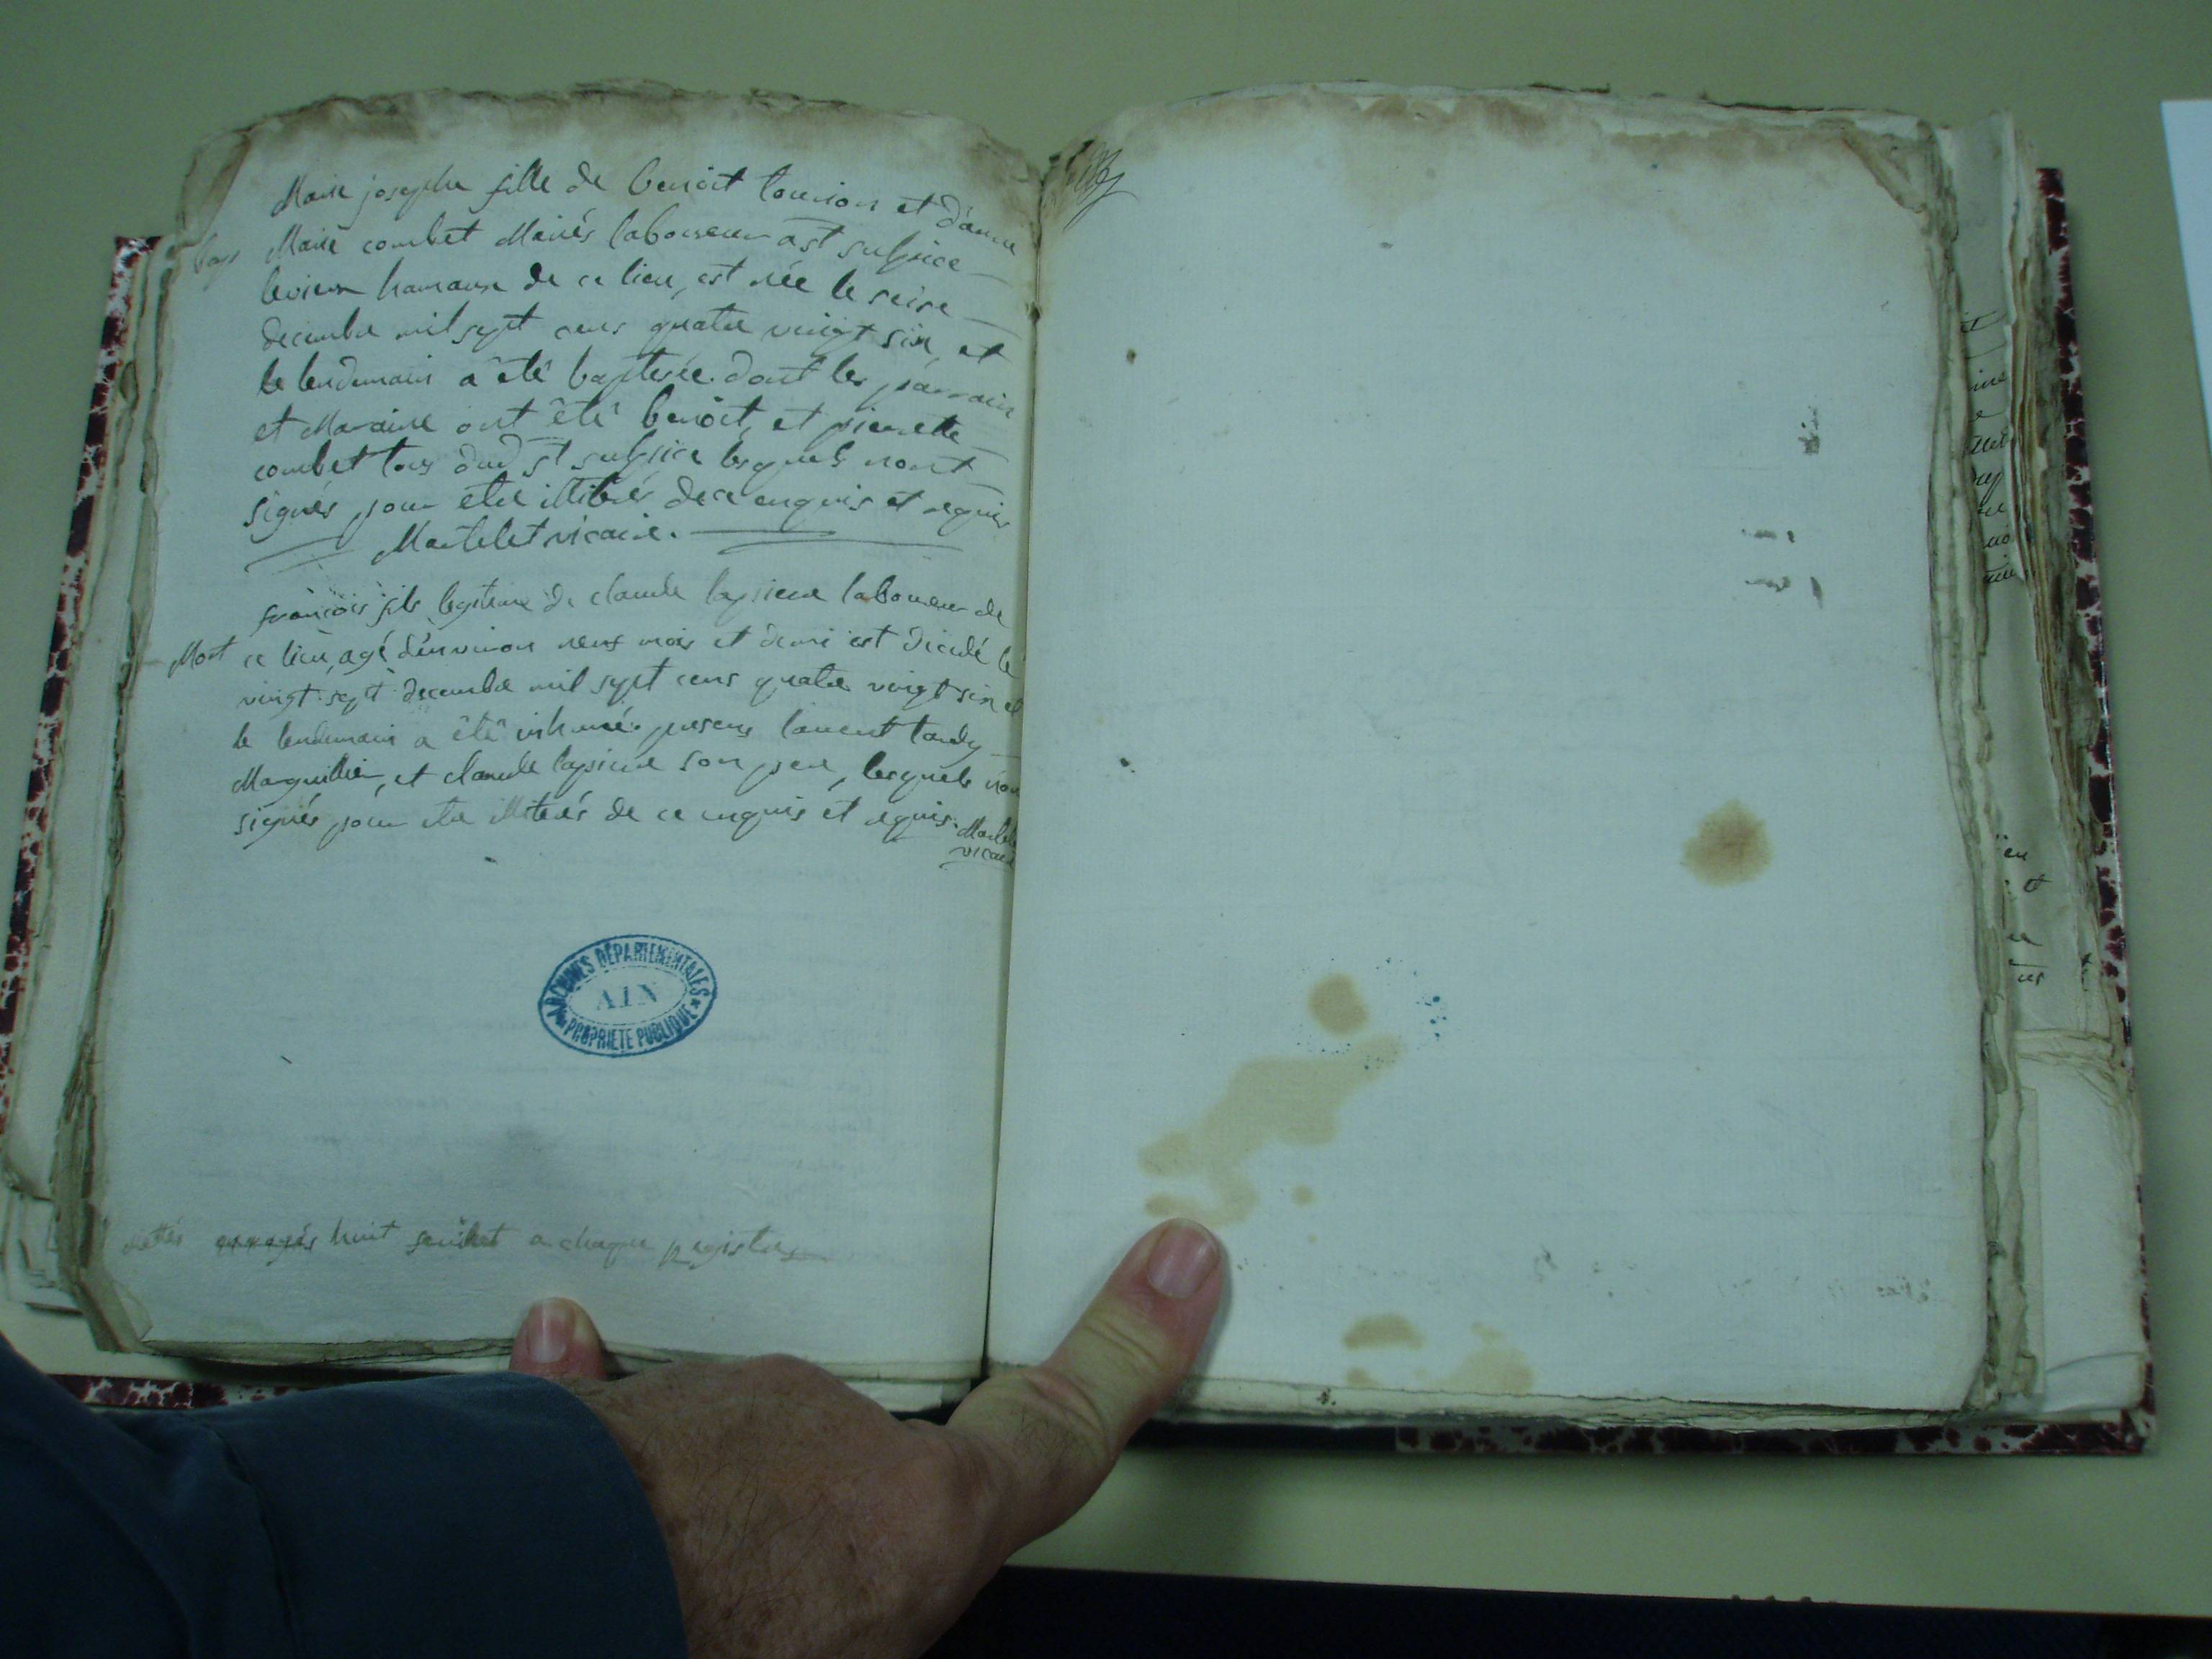 Marie josephe fille de benoit tourion et d'anne
bap Marie combet Mariés laboureur a st sulpice
levieux hamaux de ce lieu, est née le seise
decembre mil sept cens quatre vingt six, et
le lendemain a êtê baptisée. dont les parrain
et Maraine ont êtê benoit, et pierrette
combet tous dud st sulpice lesquels nont
signés pour etre illiterés de ce enquis et requis
Martelet vicaire.
francois fils legitime de claude lapierre laboureur de
Mort ce lieu, agé d'environ neuf mois et demi est décédé le
vingt sept decembre mil sept cens quatre vingt six et
le lendemain a êtê inhumé. presens laurent tardy
Marguillier, et claude lapierre son pere, lesquels non
signés pour etre illiterés de ce enquis et requis. Martelet
vicaire
ARCHIVES DÉPARTEMENTALES
AIN
PROPRIETE PUBLIQUE
huit feuillet a chaque registre